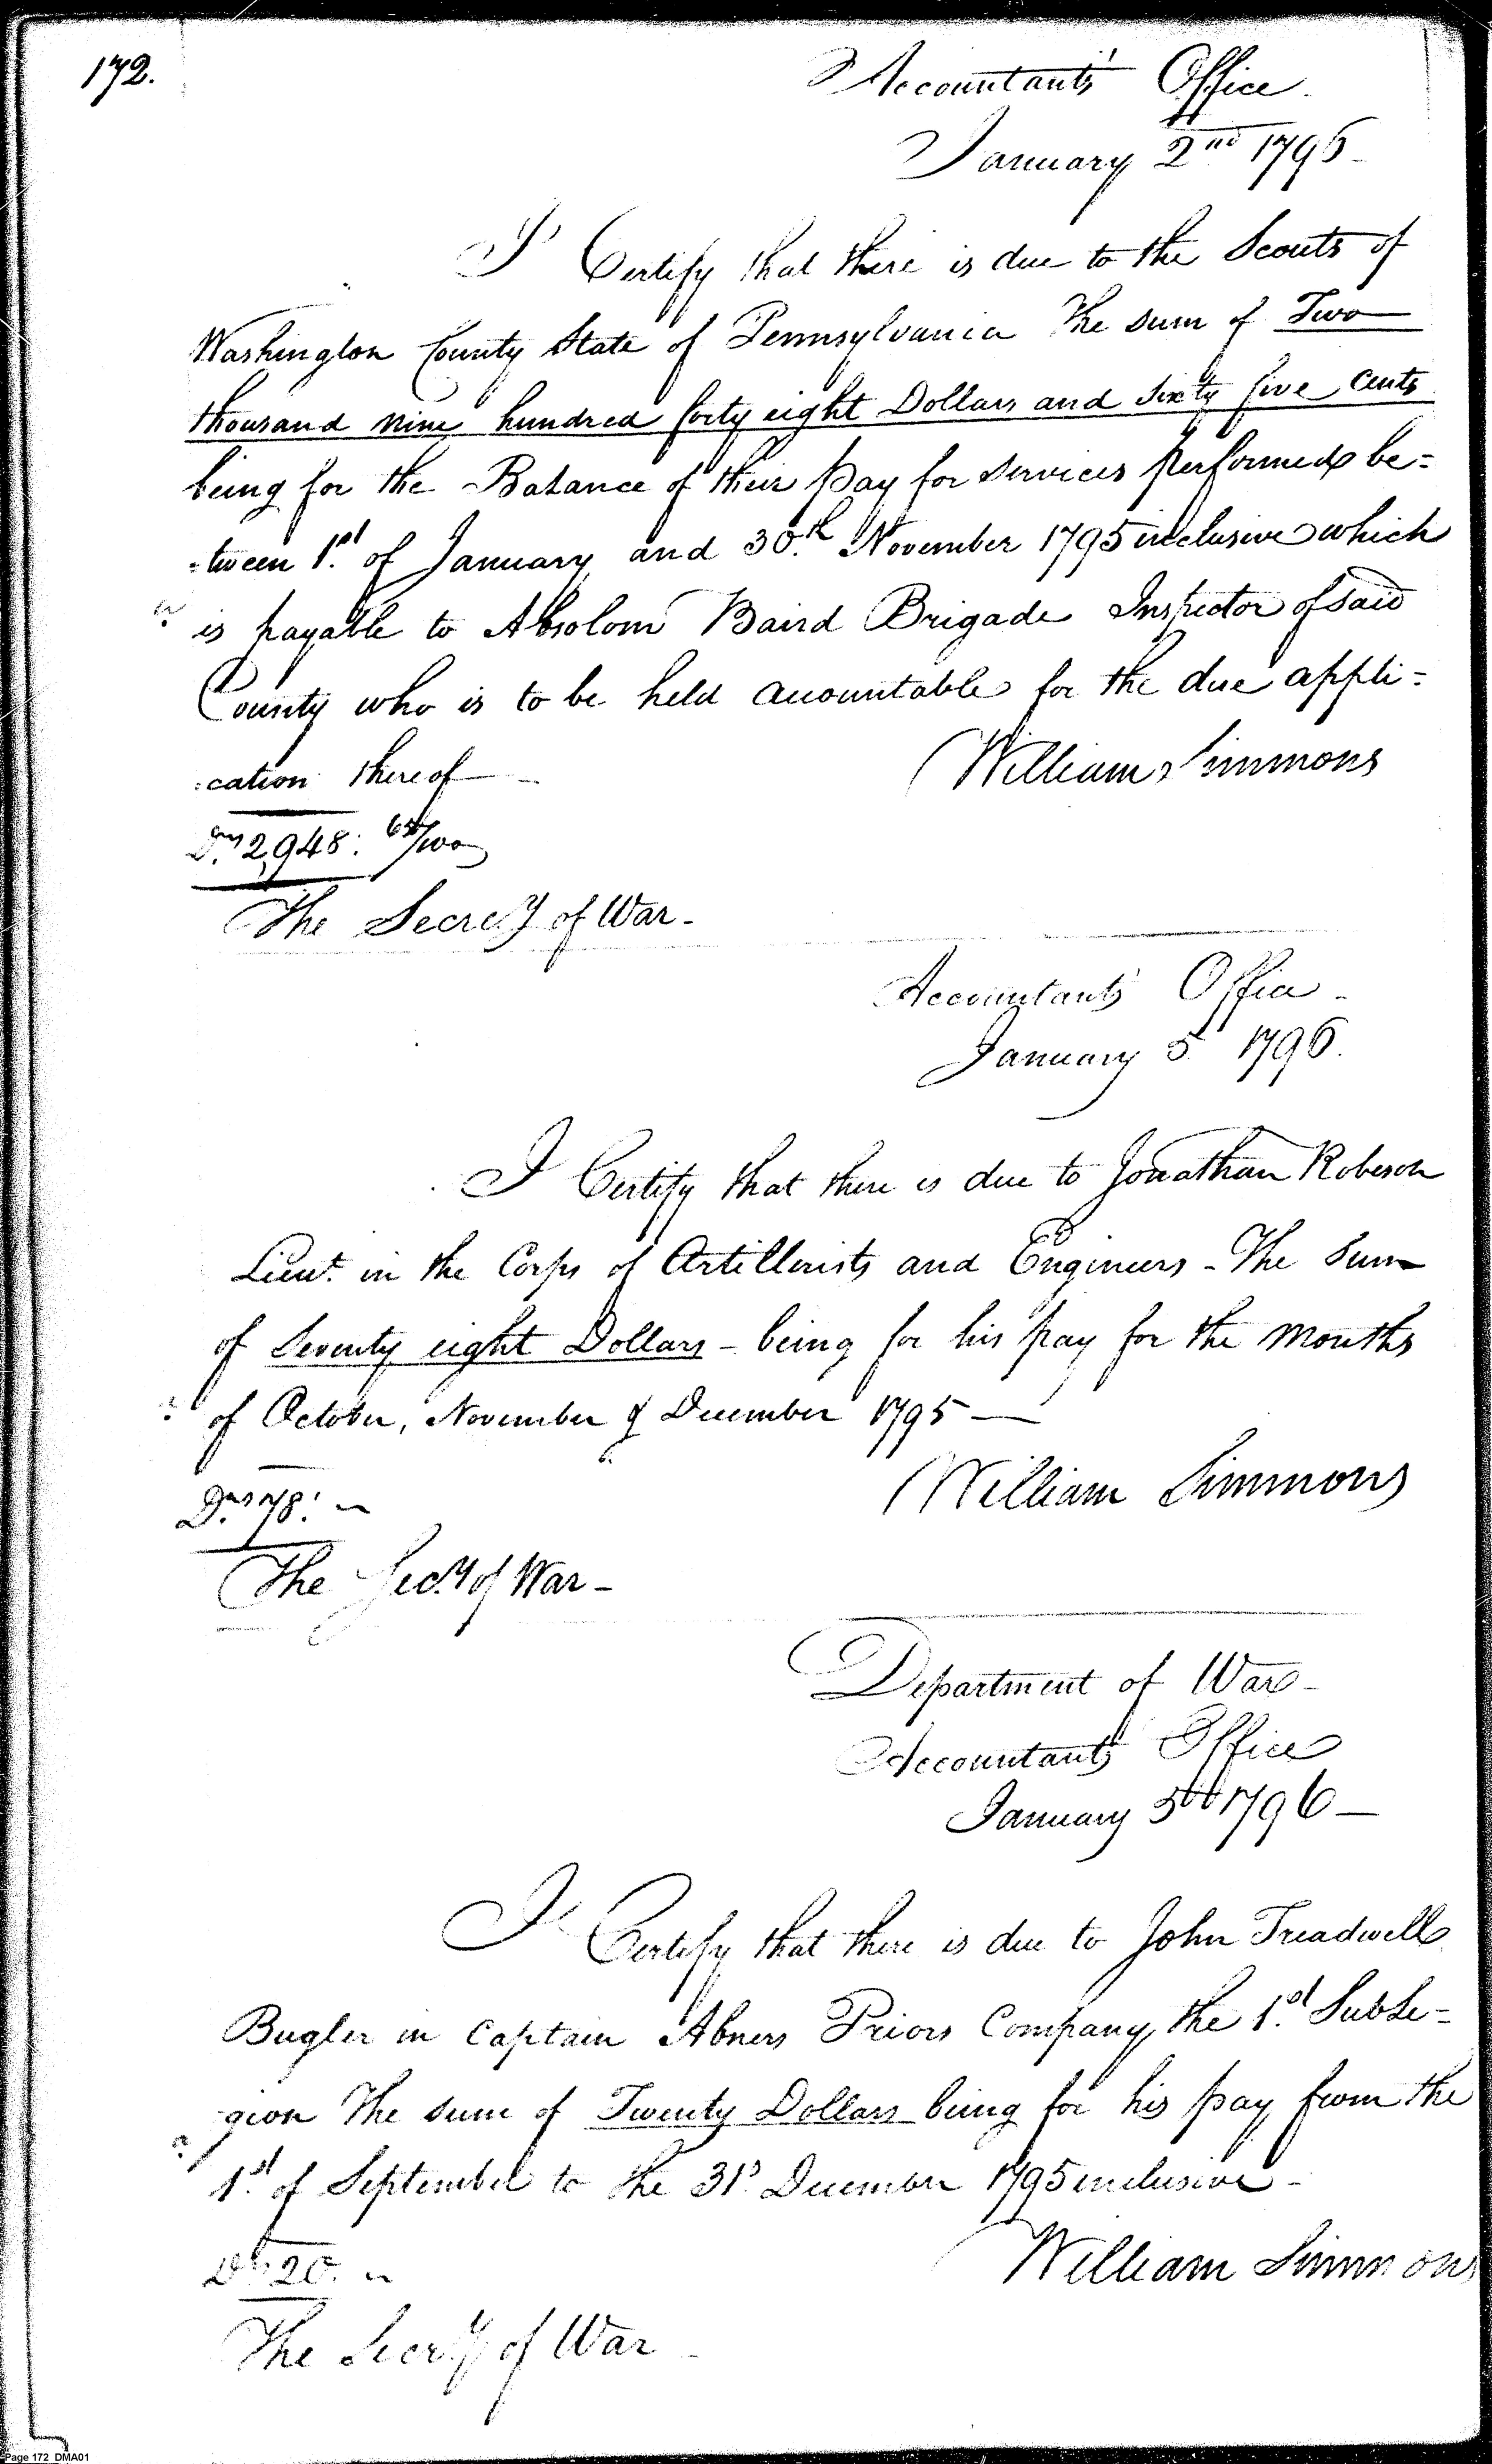 172.
Accountant's Office.
January 2nd 1796
I Certify that there is due to the Scouts of
Washington County State of Pennsylvania The sum of Two
thousand nine hundred forty eight Dollars and sixty five Cents
being for the Balance of their pay for services performed be=
=tween 1st of January and 30th November 1795 inclusive which
is payable to Absolom Baird Brigade Inspector of said
County who is to be held accountable for the due appli=
=cation thereof
William Simmons
Drs 2,948: 65/100
The Secrey of War -
Accountant's Office -
January 5 1796.
I Certify that there is due to Jonathan Robeson
Lieut. in the Corps of Artillerists and Engineers - The Sum
of Seventy eight Dollars - being for his pay for the months
of October, November & December 1795 —
William Simmons
Drs 78:
The Secy of War -
Department of War -
Accountant's Office
January 5th 1796 —
I Certify that there is due to John Treadwell
Bugler in Captain Abners Priors Company, the 1st SubLe=
=gion The sum of Twenty Dollars being for his pay from the
1st of September to the 31st December 1795 inclusive -
William Simmons
Drs 20.
The Secry of War
Page 172 DMA01